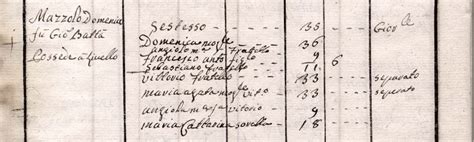 Mazzolo Domenico
fu Gio Batta
Possede a livello
Sestesso 35 Giovle
Domenica mogle 36
Angiolo mo fratello
Francesco Anto figlo 9 6
Sebastiano fratello 11
Vittorio fratello 33 separato
Maria Agata mogle 33 separato
Angiola Vitorio 9
Maria Cattarina sorella 18